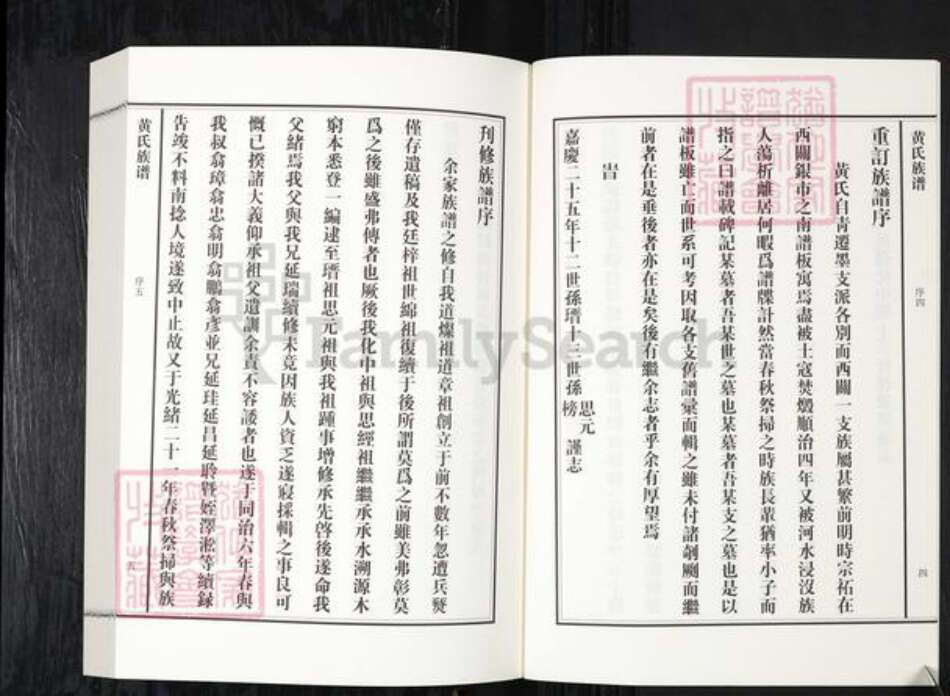 黄氏族谱
序四
四
重訂族譜序
黃氏自靑遷墨支派各別而西關一支族屬甚繁前明時宗祏在
西關銀市之南譜板寓焉盡被土寇焚燬順治四年又被河水浸沒族
人蕩析離居何暇爲譜牒計然當春秋祭掃之時族長輩猶率小子而
指之曰譜載碑記某墓者吾某世之墓也某墓者吾某支之墓也是以
譜板雖亡而世系可考因取各支舊譜彙而輯之雖未付諸剞劂而繼
前者在是垂後者亦在是矣後有繼余志者乎余有厚望焉
旹
嘉慶二十五年十二世孫瑨十三世孫思元榜謹志
刋修族譜序
余家族譜之修自我道燦祖道章祖創立于前不數年忽遭兵燹
僅存遺稿及我廷梓祖世綿祖復續于後所謂莫爲之前雖美弗彰莫
爲之後雖盛弗傳者也厥後我化中祖與思經祖繼繼承承水溯源木
窮本悉登一編逮至瑨祖思元祖與我祖踵事增修承先啓後遂命我
父緒焉我父與我兄延瑞續修未竟因族人資乏遂寢採輯之事良可
慨已揆諸大義仰承祖父遺訓余責不容諉者也遂于同治六年春與
我叔翕璋翕忠翕明翕鵬翕彥並兄延珪延昌延聆暨姪澤淞等續録
告竣不料南捻入境遂致中止故又于光緒二十一年春秋祭掃與族
黄氏族谱
序五
五
FamilySearch